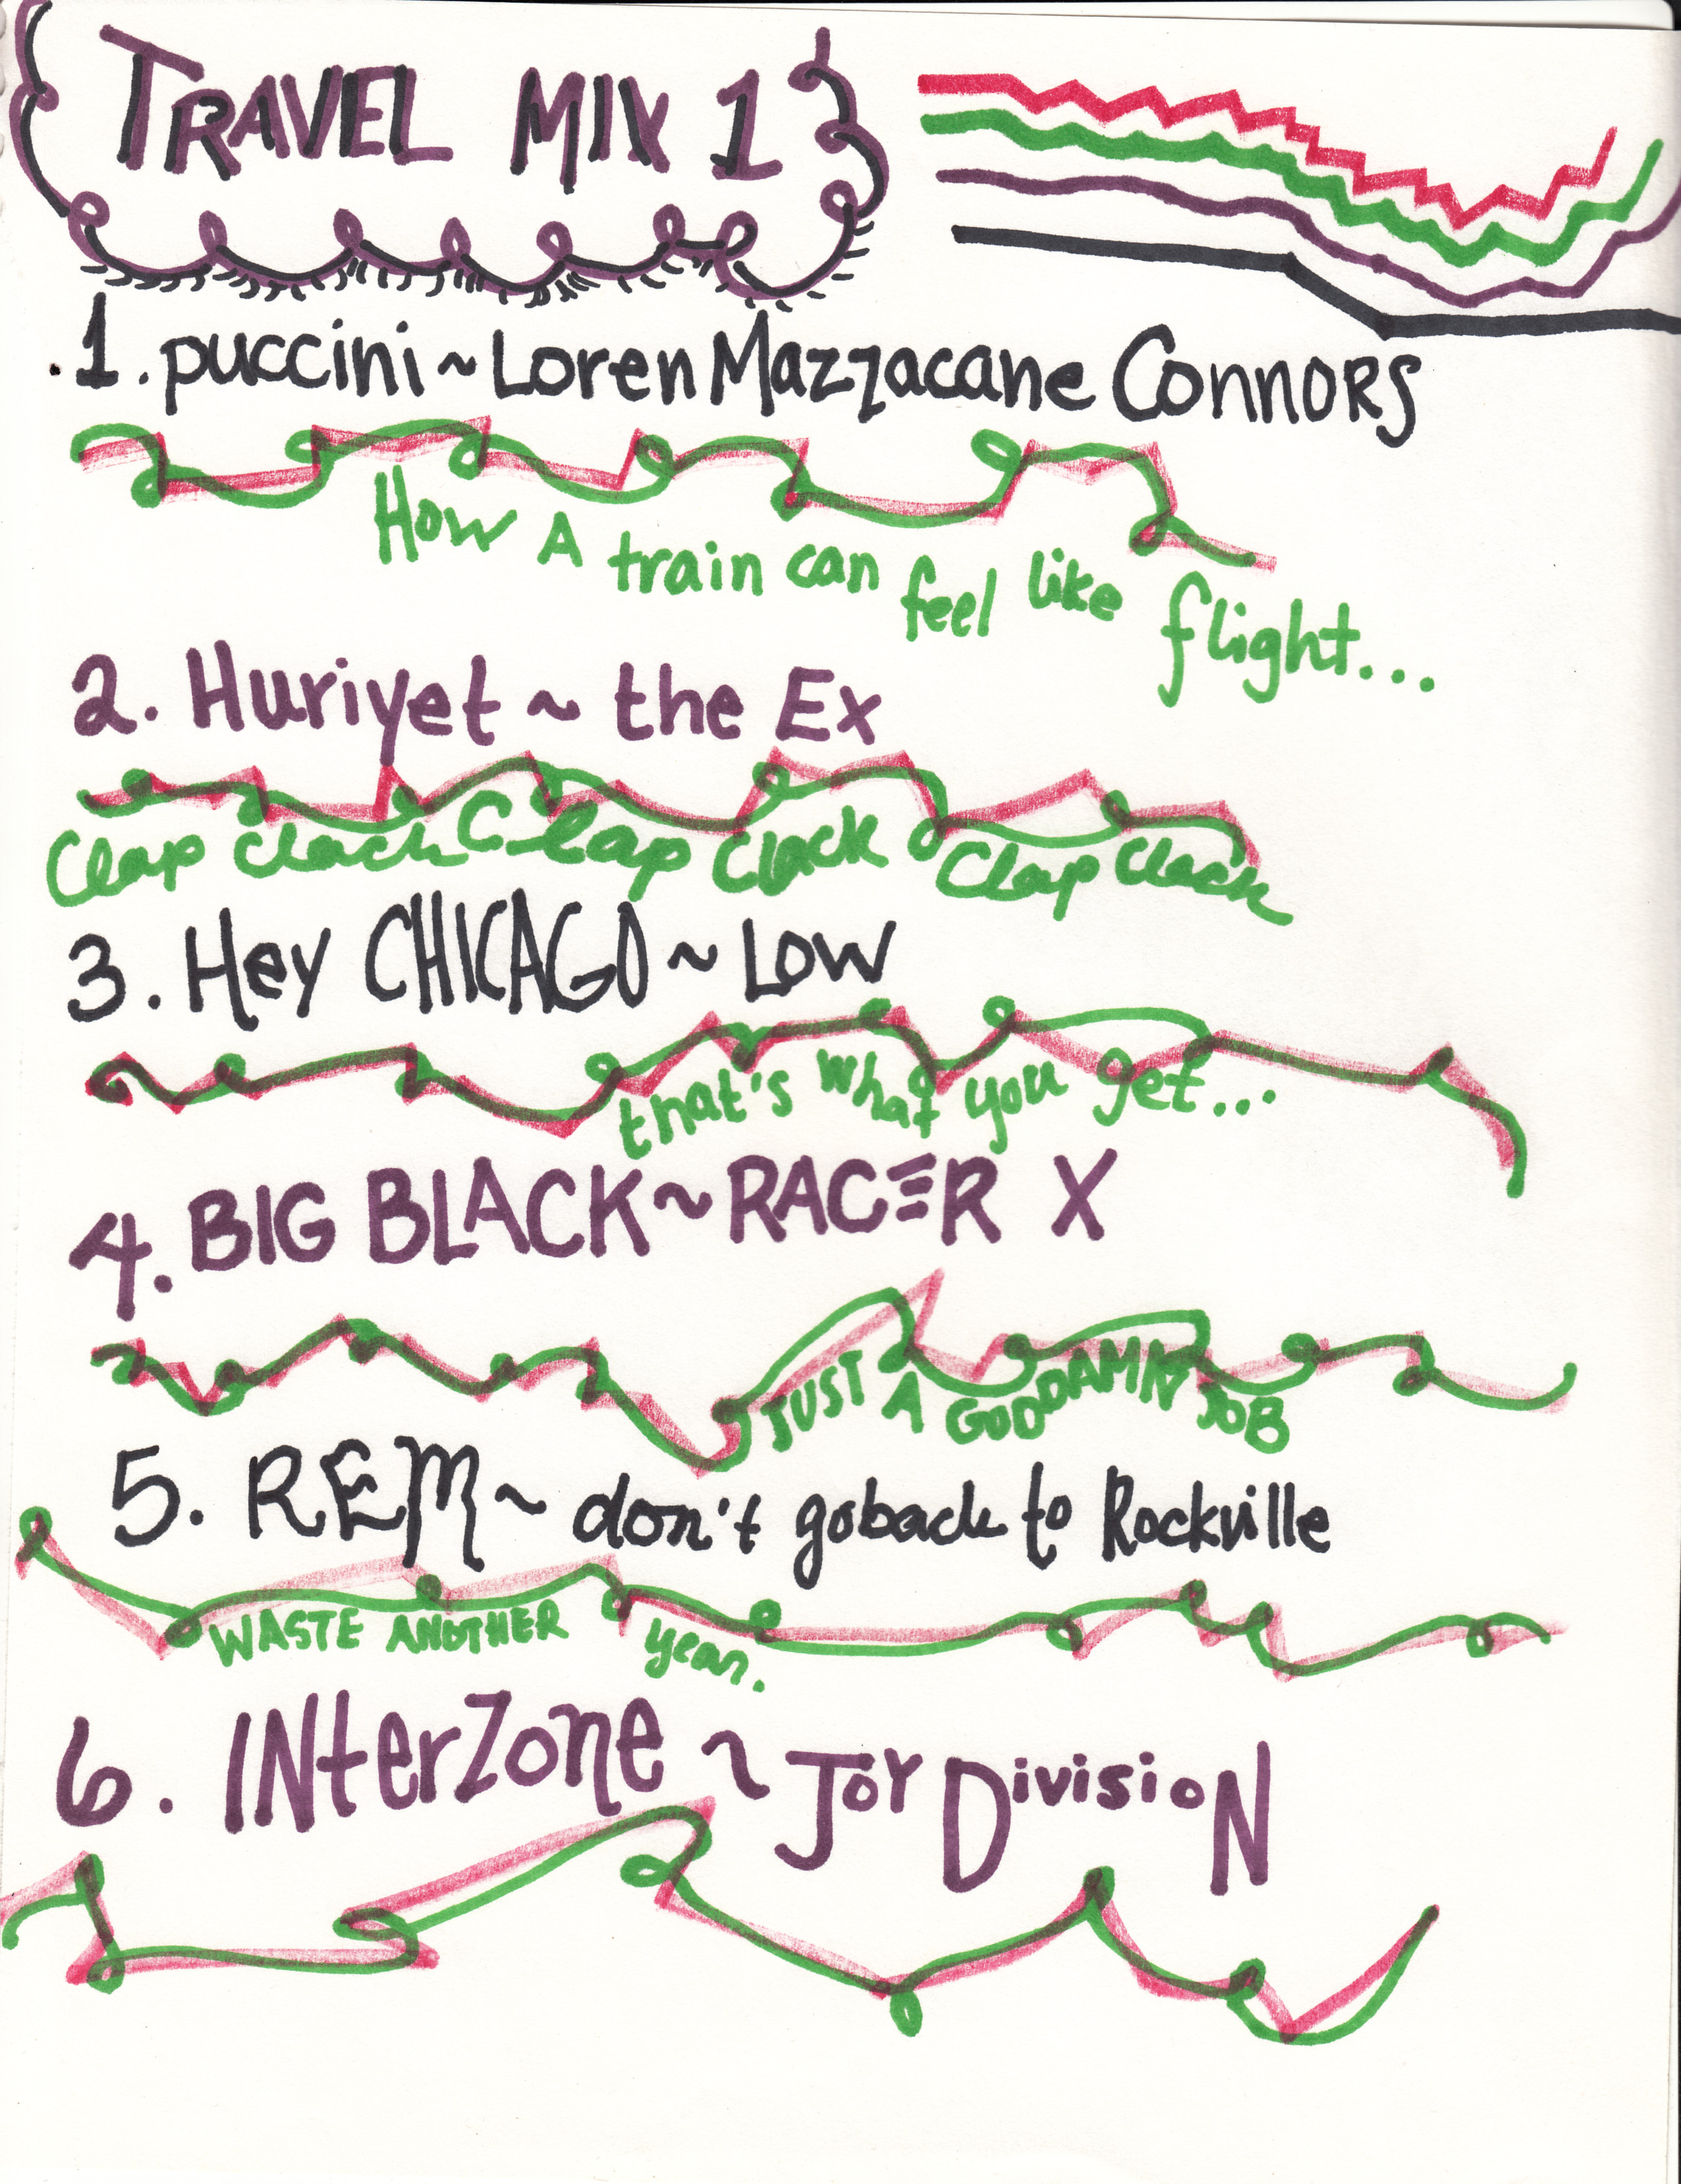 TRAVEL MIX 1
1. puccini ~ Loren Mazzacane Connors
How A train can feel like flight...
2. Huriyet ~ the Ex
Clap Clack Clap Clack Clap Clack
3. Hey CHICAGO ~ Low
that's what you get...
4. BIG BLACK ~ RACER X
JUST A GODDAMN JOB
5. REM ~ don't go back to Rockville
WASTE ANOTHER year.
6. INterZone ~ JOY DivisioN